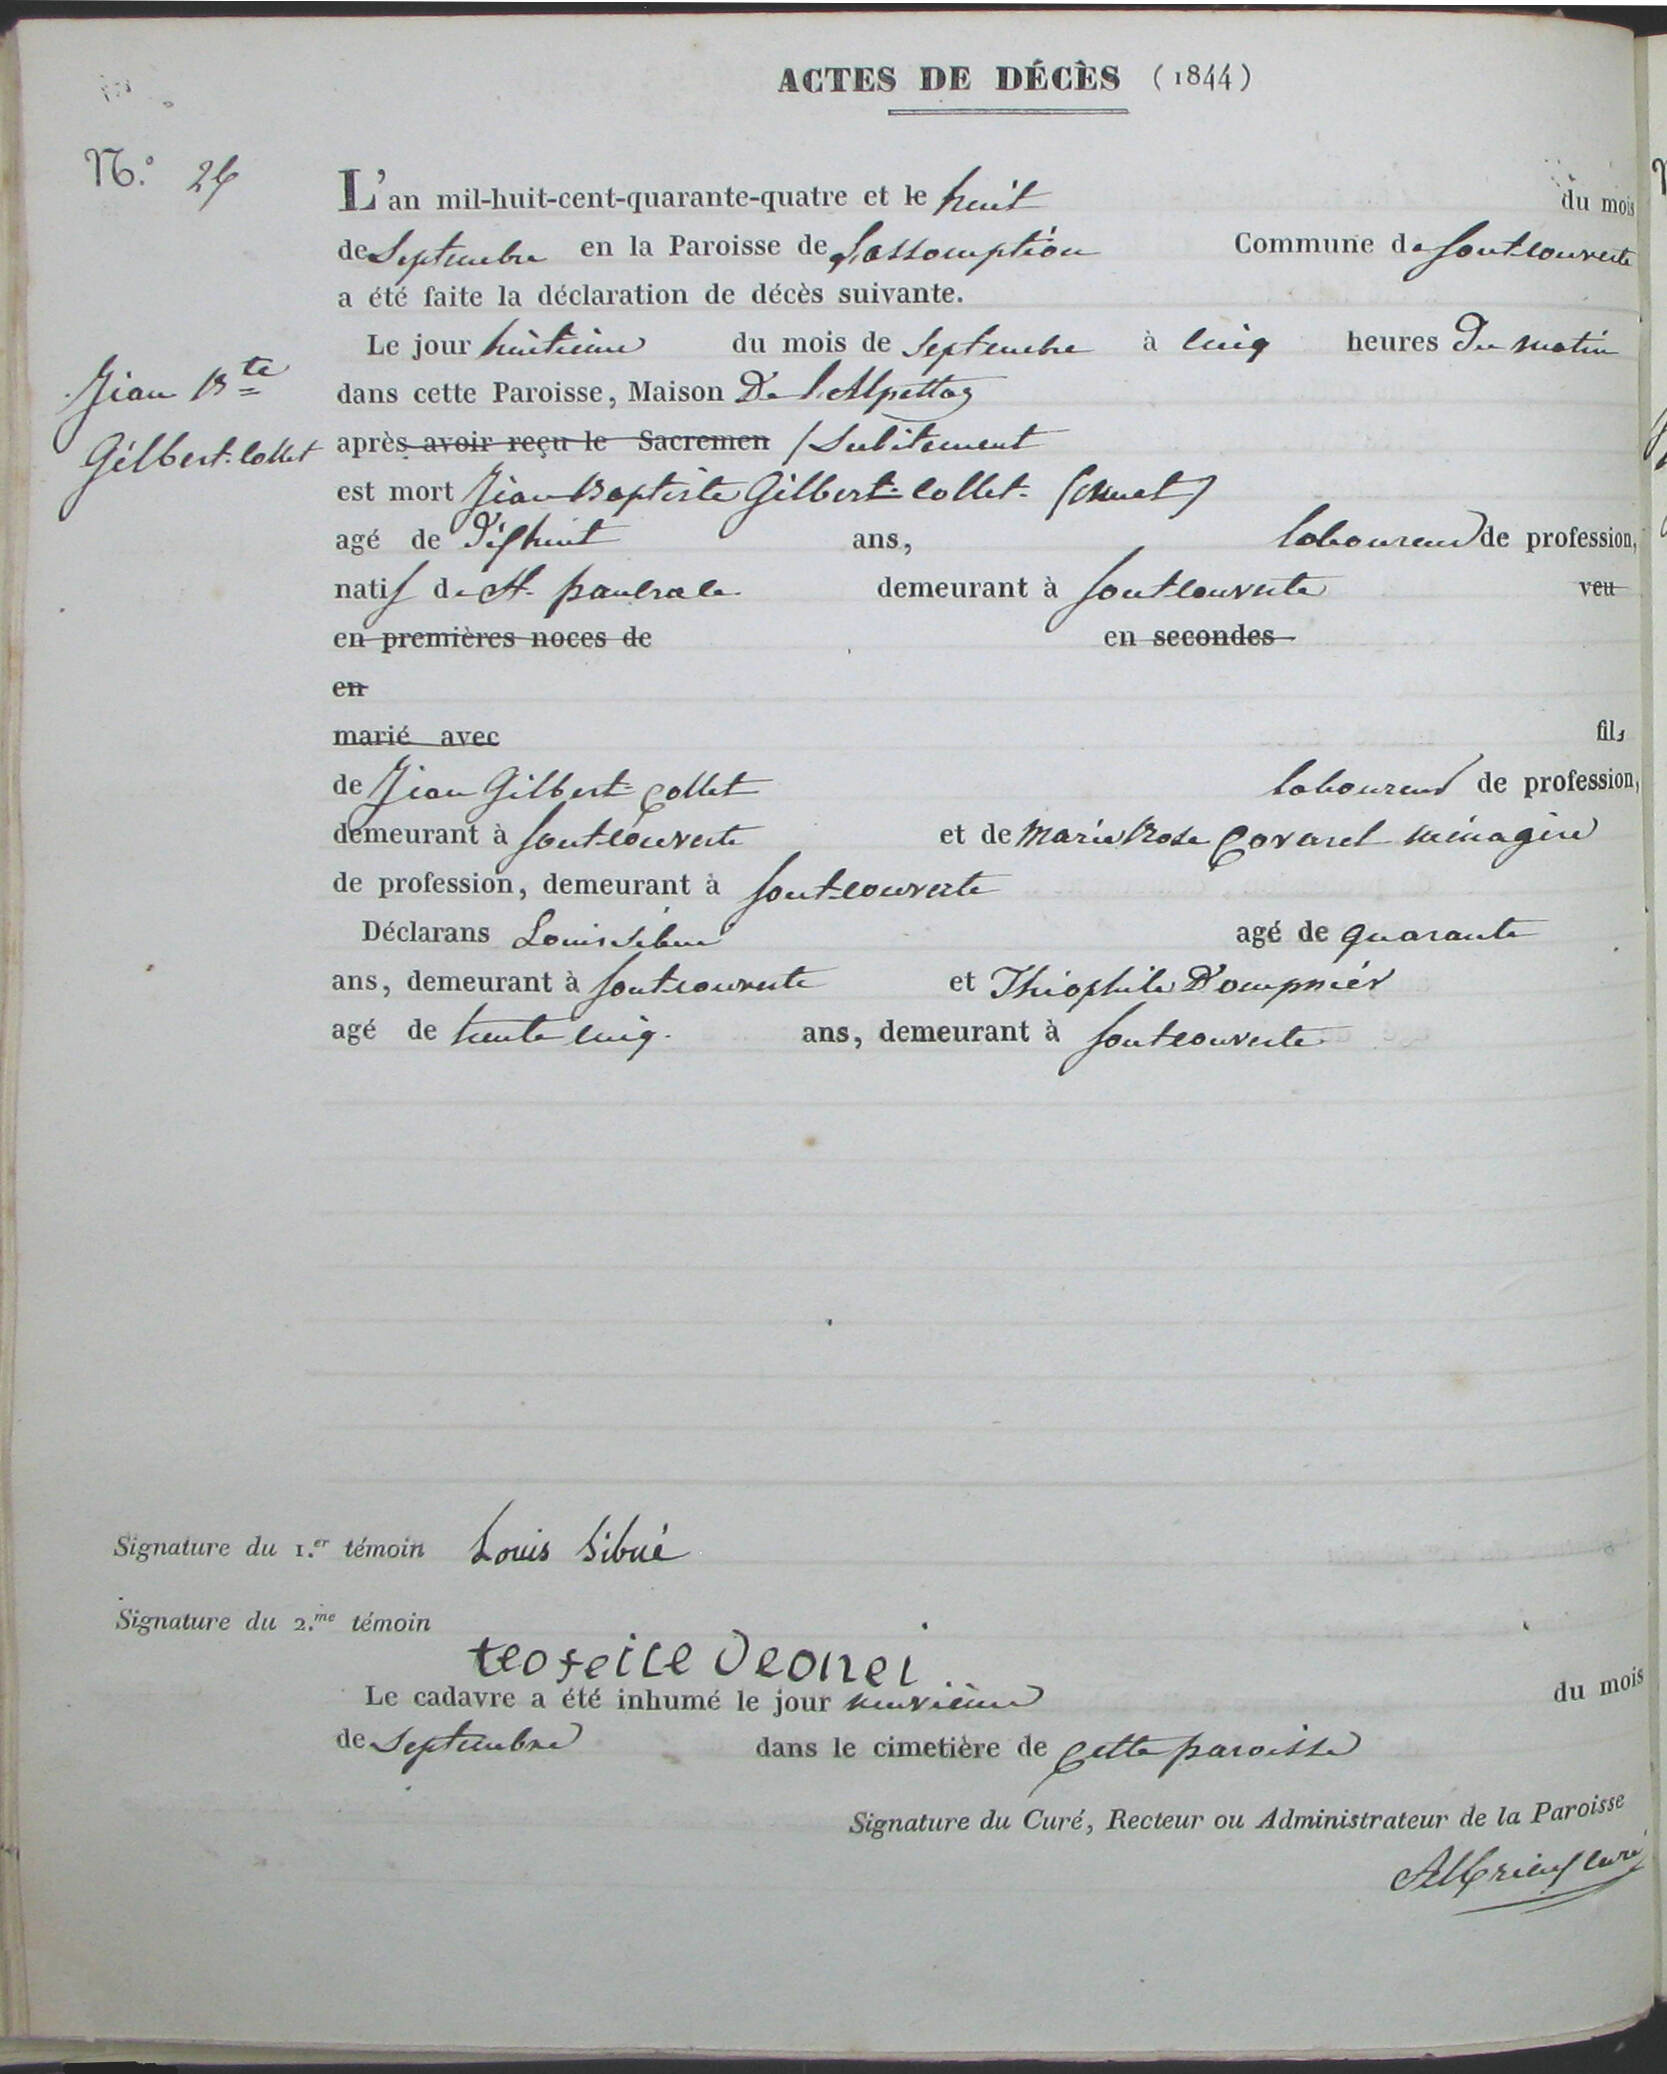 ACTES DE DÉCÈS (1844)
N.º 24
L'an mil-huit-cent-quarante-quatre et le huit du mois
de Septembre en la Paroisse de l'assomption Commune de fontcouverte
a été faite la déclaration de décès suivante.
Le jour huitieme du mois de Septembre à cinq heures Du matin
Jean Bte
dans cette Paroisse, Maison De l'Alpettaz
Gilbert-Collet
après avoir reçu le Sacremen / Subitement
est mort Jean Baptiste Gilbert-Collet. (muet)
agé de Dixhuit ans, laboureur de profession,
natif de St. paul demeurant à fontcouverte veu
en premières noces de en secondes
en
marié avec fils
de Jean Gilbert-Collet laboureur de profession,
demeurant à fontcouverte et de Marie Rose Covarel ménagère
de profession, demeurant à fontcouverte
Déclarans Louis Sibué agé de quarante
ans, demeurant à fontcouverte et Théophile Dompnier
agé de trente cinq. ans, demeurant à fontcouverte
Signature du 1.er témoin Louis Sibué
Signature du 2.me témoin
Le cadavre a été inhumé le jour neuvième du mois
de Septembre dans le cimetière de Cette paroisse
Signature du Curé, Recteur ou Administrateur de la Paroisse
curé